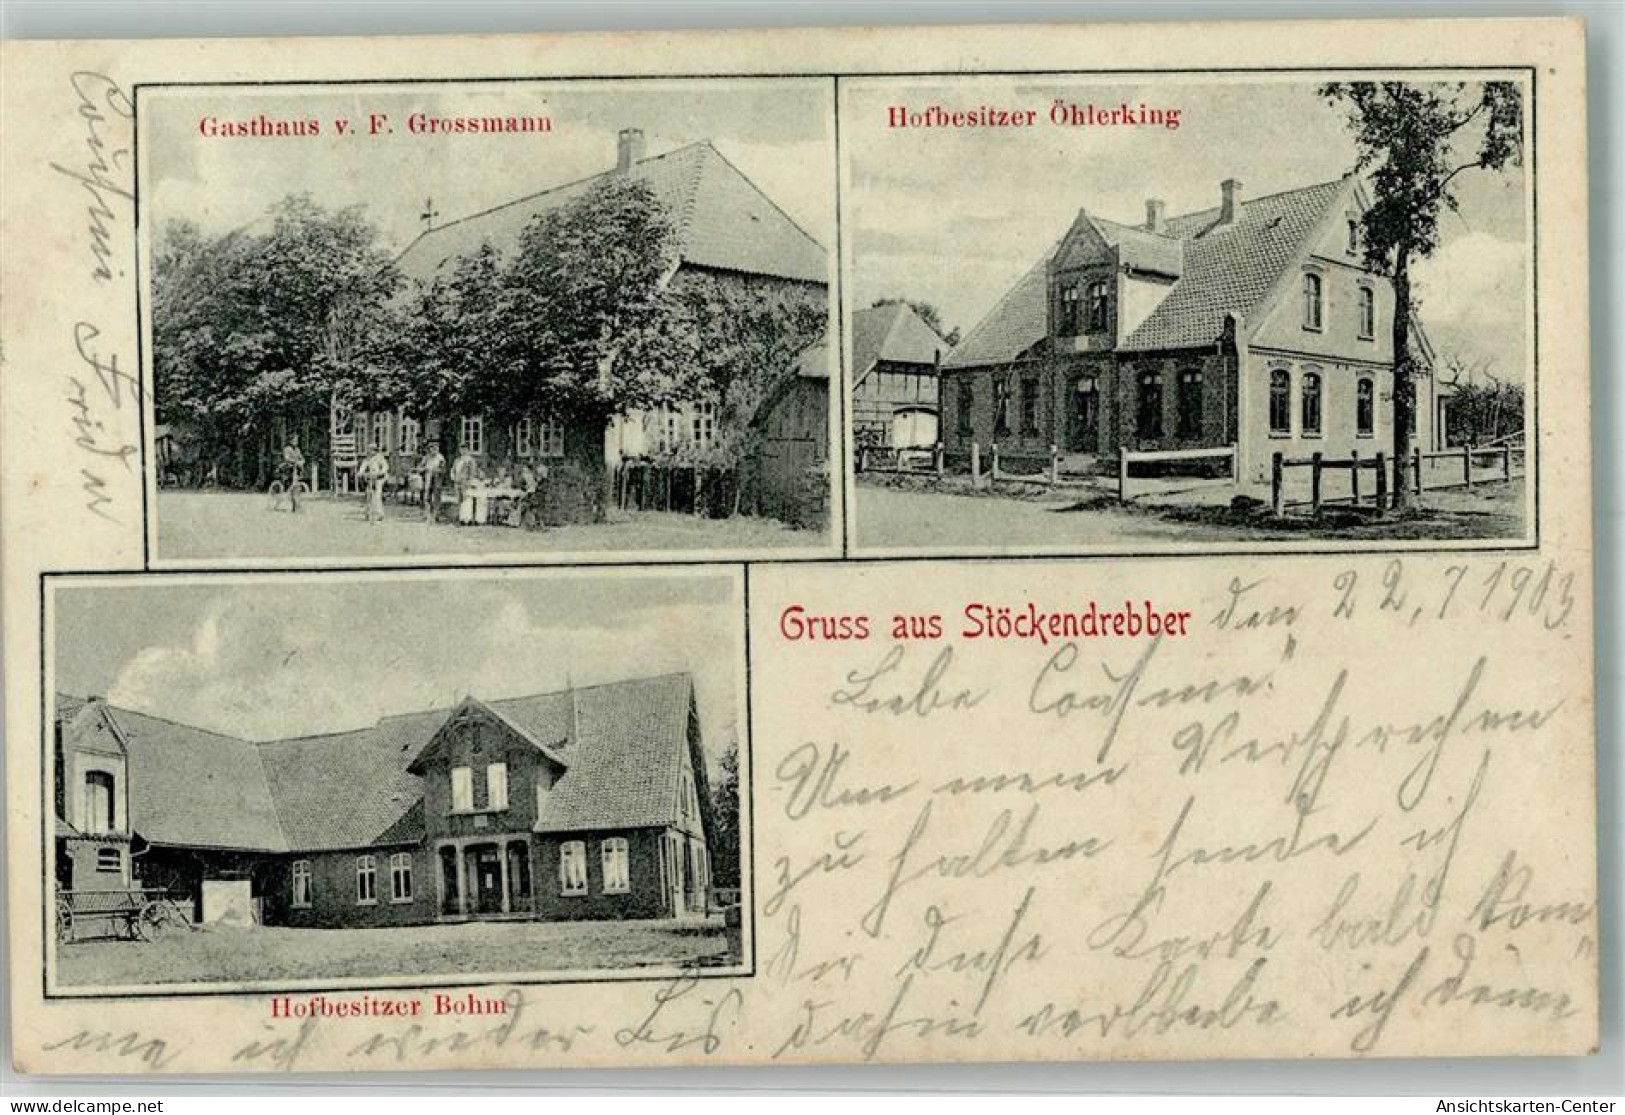 Gasthaus v. F. Grossmann
Hofbesitzer Öhlerking
Hofbesitzer Bohm
Gruss aus Stöckendrebber
den 22.7 1903.
Liebe Cousine!
Um mein Versprechen
zu halten sende ich
Dir diese Karte bald kom
me ich wieder Bis dahin verbleibe ich deine
Cousine Frieda
Ansichtskarten-Center